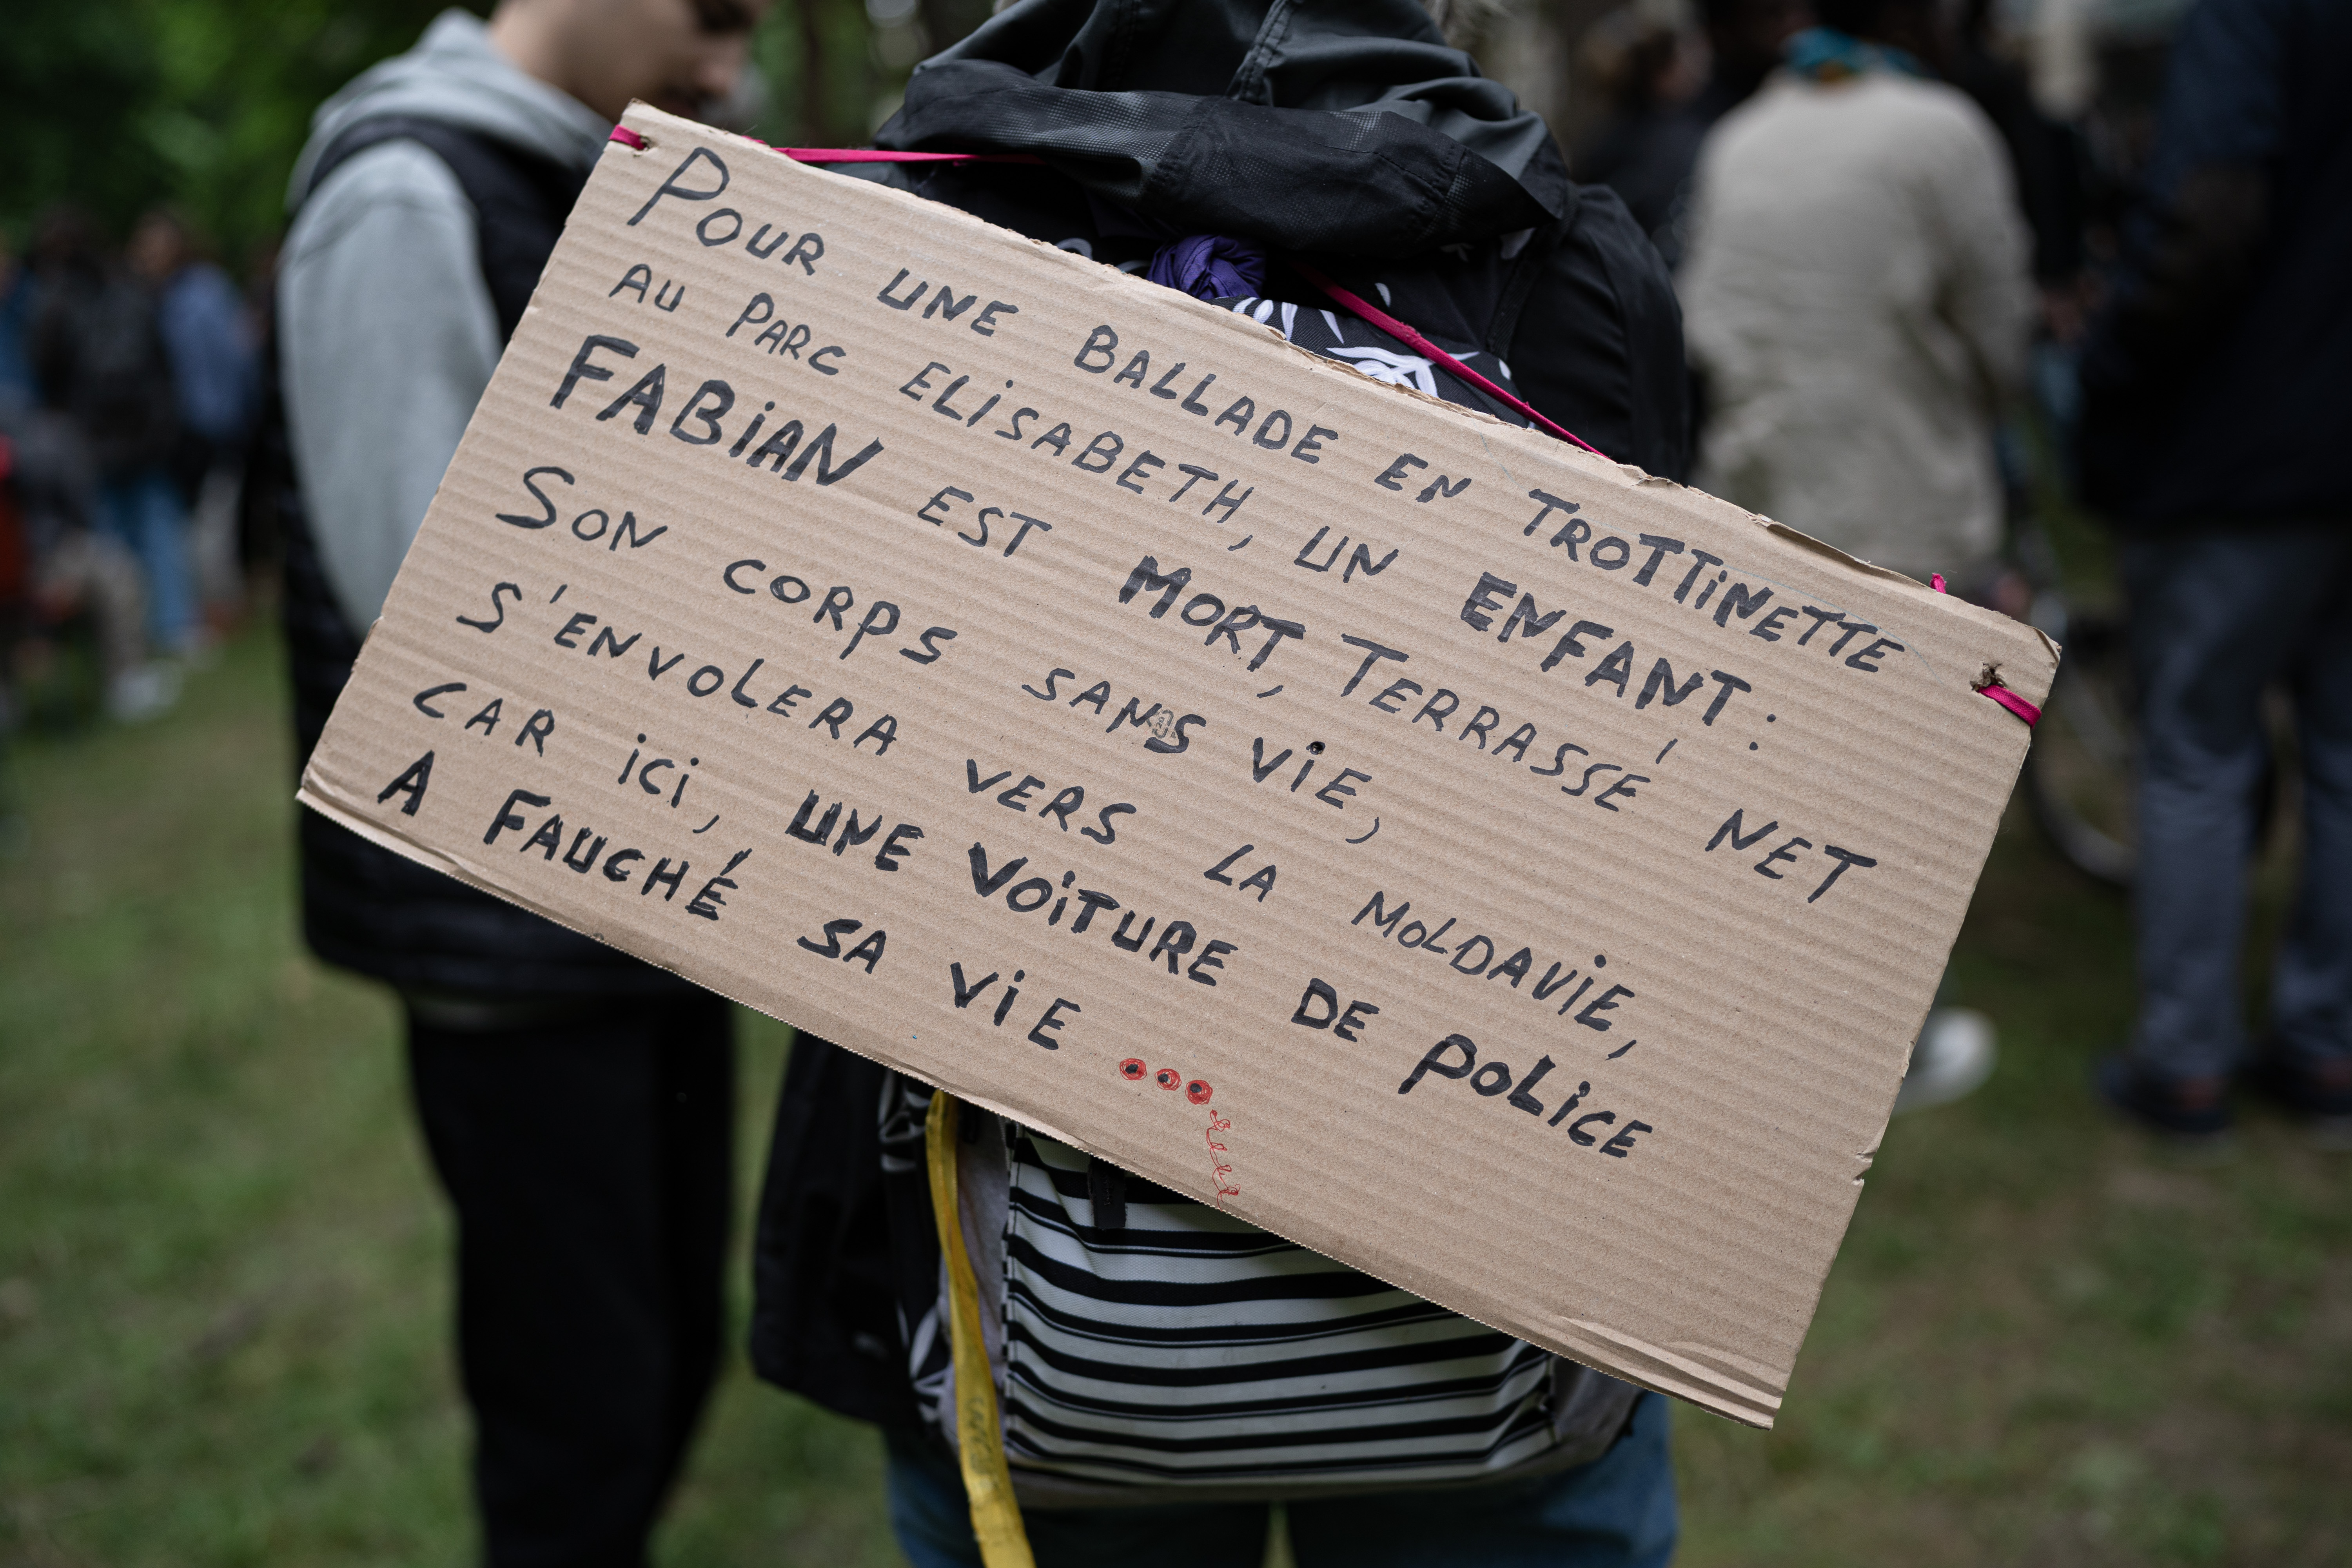 POUR UNE BALLADE EN TROTTINETTE
AU PARC ELISABETH, UN ENFANT :
FABIAN EST MORT, TERRASSÉ NET
SON CORPS SANS VIE,
S'ENVOLERA VERS LA MOLDAVIE,
CAR ICI, UNE VOITURE DE POLICE
A FAUCHÉ SA VIE ...